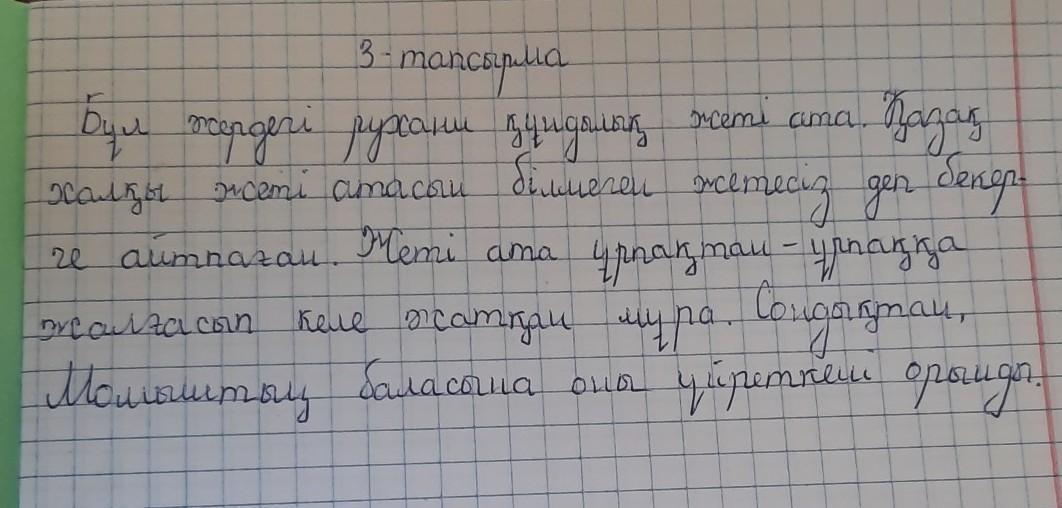 3-тапсырма
Бұл жердегі рухани құндылық жеті ата. Қазақ
халқы жеті атасын білмеген жетесіз деп бекер-
ге айтпаған. Жеті ата ұрпақтан-ұрпаққа
жалғасып келе жатқан мұра. Сондықтан,
Момынтың баласына оны үйреткені орынды.